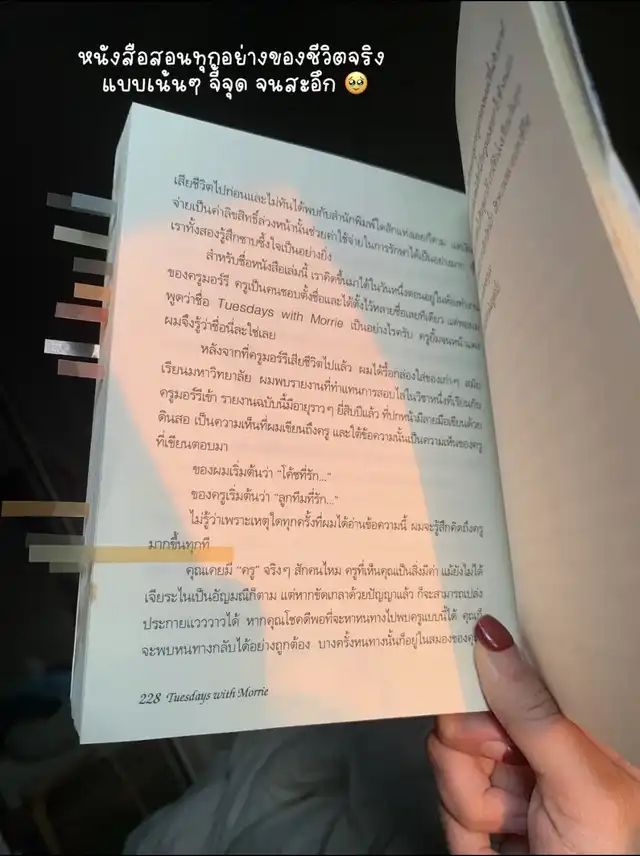 หนังสือสอนทุกอย่างของชีวิตจริง
แบบเน้นๆ จี้จุด จนสะอึก 🥹
เสียชีวิตไปก่อนและไม่ทันได้พบกับสำนักพิมพ์ใดสักแห่งเลยก็ตาม
จ่ายเป็นค่าลิขสิทธิ์ล่วงหน้านั้นช่วยค่าใช้จ่ายในการรักษาได้เป็นอย่างมาก
เราทั้งสองรู้สึกซาบซึ้งใจเป็นอย่างยิ่ง
สำหรับชื่อหนังสือเล่มนี้ เราคิดขึ้นมาได้ในวันหนึ่งตอนอยู่ในห้องทำงาน
ของครูมอร์รี ครูเป็นคนชอบตั้งชื่อและได้ตั้งไว้หลายชื่อเลยทีเดียว
พูดว่าชื่อ Tuesdays with Morrie เป็นอย่างไรครับ ครูยิ้มจนหน้าแดง
ผมจึงรู้ว่าชื่อนี่ละใช่เลย
หลังจากที่ครูมอร์รีเสียชีวิตไปแล้ว ผมได้รื้อกล่องใส่ของเก่าๆ สมัย
เรียนมหาวิทยาลัย ผมพบรายงานที่ทำแทนการสอบไล่ในวิชาหนึ่งที่เรียนกับ
ครูมอร์รีเข้า รายงานฉบับนี้มีอายุราวๆ ยี่สิบปีแล้ว ที่ปกหน้ามีลายมือเขียนด้วย
ดินสอ เป็นความเห็นที่ผมเขียนถึงครู และใต้ข้อความนั้นเป็นความเห็นของครู
ที่เขียนตอบมา
ของผมเริ่มต้นว่า “โค้ชที่รัก...”
ของครูเริ่มต้นว่า “ลูกทีมที่รัก...”
ไม่รู้ว่าเพราะเหตุใดทุกครั้งที่ผมได้อ่านข้อความนี้ ผมจะรู้สึกคิดถึงครู
มากขึ้นทุกที
คุณเคยมี “ครู” จริงๆ สักคนไหม ครูที่เห็นคุณเป็นสิ่งมีค่า แม้ยังไม่ได้
เจียระไนเป็นอัญมณีก็ตาม แต่หากขัดเกลาด้วยปัญญาแล้ว ก็จะสามารถเปล่ง
ประกายแวววาวได้ หากคุณโชคดีพอที่จะหาหนทางไปพบครูแบบนี้ได้ คุณก็
จะพบหนทางกลับได้อย่างถูกต้อง บางครั้งหนทางนั้นก็อยู่ในสมองของ
228 Tuesdays with Morrie